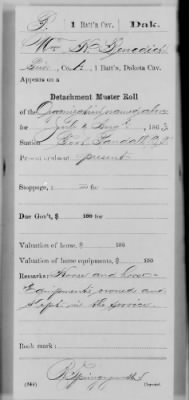 B | 1 Batt'n Cav. | Dak.
Wm. H. Benedict
Co. A, 1 Batt'n, Dakota Cav.
Appears on a
Detachment Muster Roll
of the Organization named above
for July & Aug., 1863.
Station Fort Randall
Present or absent present
Stoppage, $ 100 for
Due Gov't, $ 100 for
Valuation of horse, $ 100
Valuation of horse equipments, $ 100
Remarks: Horse and horse
Equipments owned and
kept in the service.
Book mark:
(Copyist)